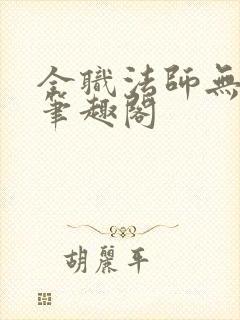 全職法師無
筆趣閣
胡麗平